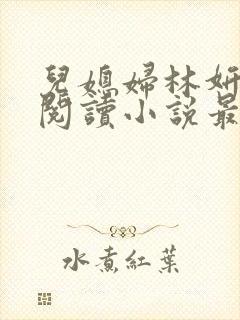 兒媳婦林妍
閱讀小說最
水煮紅葉